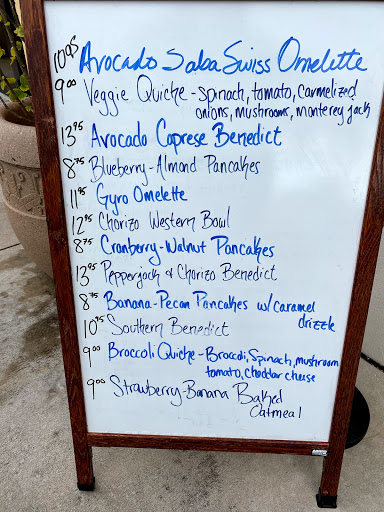 10.95 Avocado Salsa Swiss Omelette
9.00 Veggie Quiche - spinach, tomato, carmelized
onions, mushrooms, monterey jack
13.95 Avocado Caprese Benedict
8.75 Blueberry-Almond Pancakes
11.95 Gyro Omelette
12.95 Chorizo Western Bowl
8.75 Cranberry-Walnut Pancakes
13.95 Pepperjack & Chorizo Benedict
8.75 Banana-Pecan Pancakes w/caramel
drizzle
10.95 Southern Benedict
9.00 Broccoli Quiche - Broccoli, Spinach, mushroom
tomato, cheddar cheese
9.00 Strawberry-Banana Baked
Oatmeal